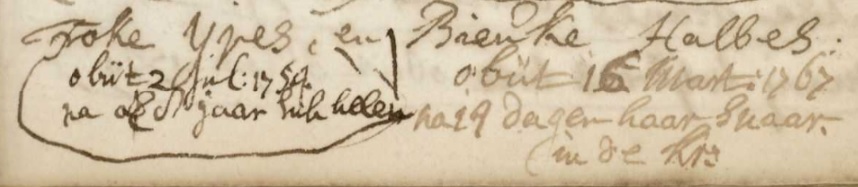 Foke Ypes, en Bienke Halbes.
obiit 2 Jul: 1754. obiit 16 Mart: 1767
na jaar na 19 dagen haar
in de kr: